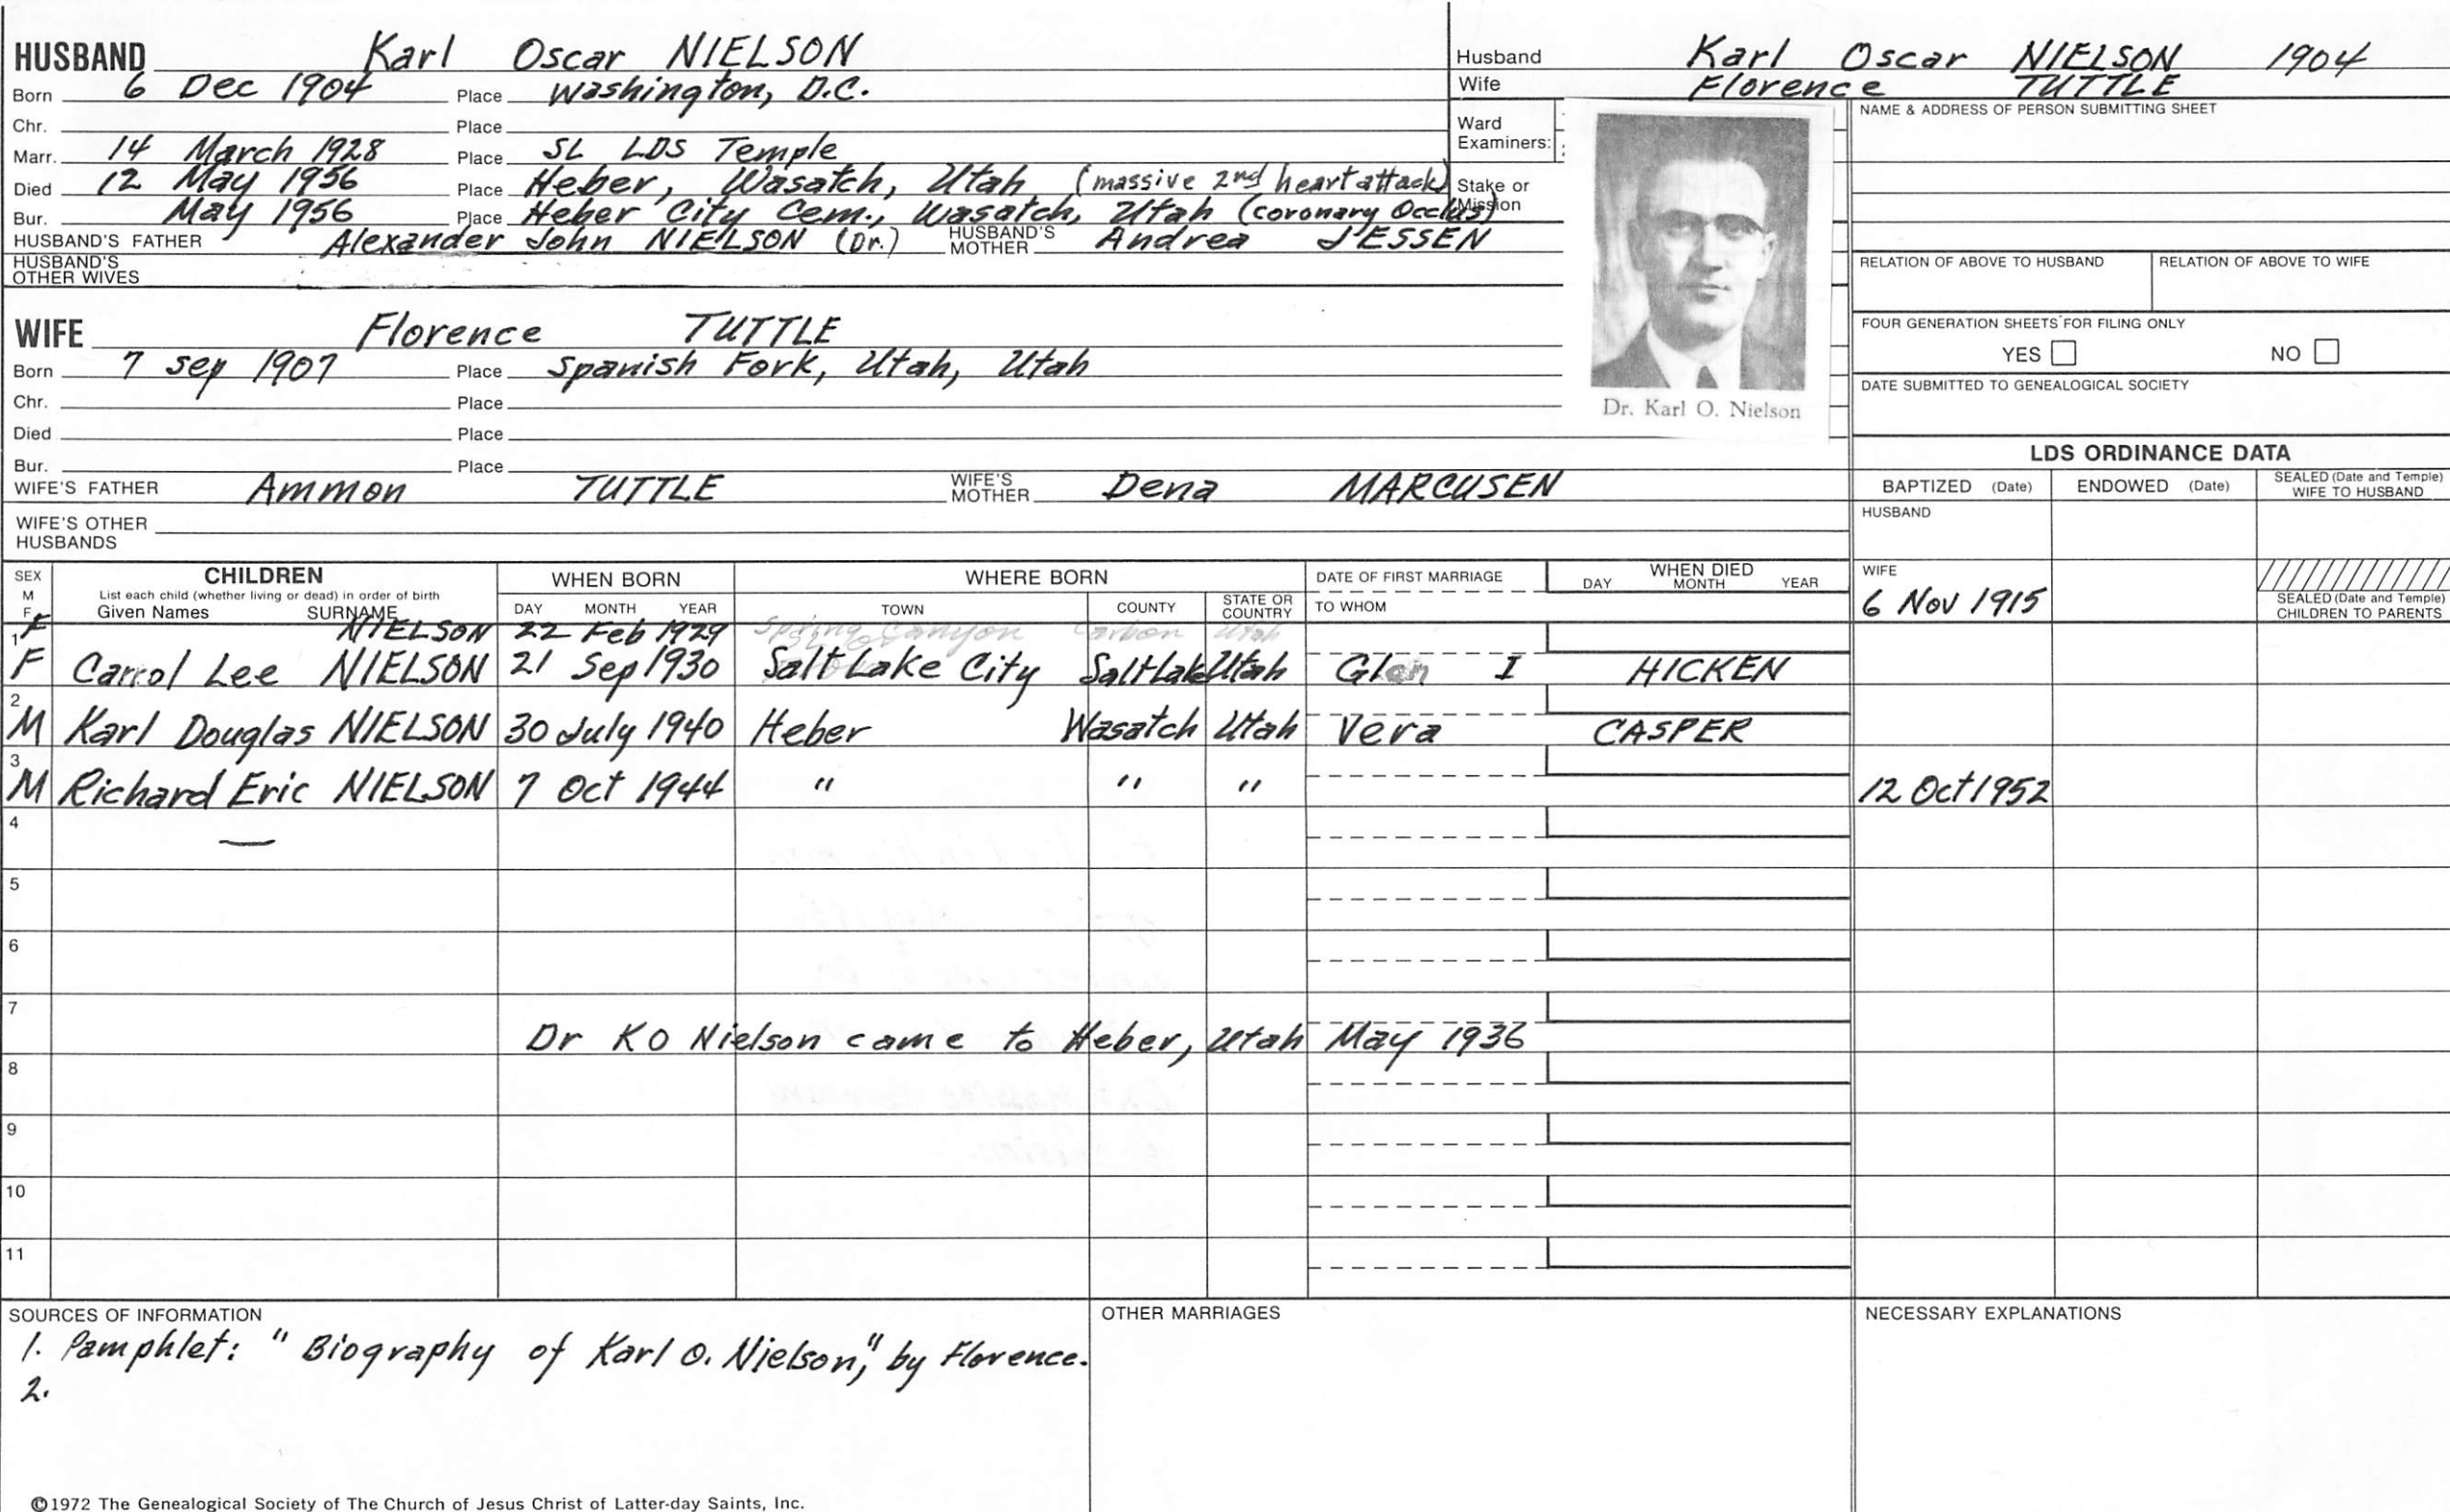 HUSBAND Karl Oscar NIELSON
Born 6 Dec 1904 Place Washington, D.C.
Chr. Place
Marr. 14 March 1928 Place SL LDS Temple
Died 12 May 1956 Place Heber, Wasatch, Utah (massive 2nd heart attack)
Bur. May 1956 Place Heber City Cem., Wasatch, Utah (coronary Occlus)
HUSBAND'S FATHER Alexander John NIELSON (Dr.) HUSBAND'S MOTHER Andrea JESSEN
HUSBAND'S OTHER WIVES
WIFE Florence TUTTLE
Born 7 Sep 1907 Place Spanish Fork, Utah, Utah
Chr. Place
Died Place
Bur. Place
WIFE'S FATHER Ammon TUTTLE WIFE'S MOTHER Dena MARCUSEN
WIFE'S OTHER HUSBANDS
Husband Karl Oscar NIELSON 1904
Wife Florence TUTTLE
Ward
Examiners:
Stake or
Mission
Dr. Karl O. Nielson
NAME & ADDRESS OF PERSON SUBMITTING SHEET
RELATION OF ABOVE TO HUSBAND RELATION OF ABOVE TO WIFE
FOUR GENERATION SHEETS FOR FILING ONLY
YES NO
DATE SUBMITTED TO GENEALOGICAL SOCIETY
LDS ORDINANCE DATA
BAPTIZED (Date) ENDOWED (Date) SEALED (Date and Temple) WIFE TO HUSBAND
HUSBAND
WIFE
6 Nov 1915
SEALED (Date and Temple)
CHILDREN TO PARENTS
SEX M F CHILDREN WHEN BORN WHERE BORN DATE OF FIRST MARRIAGE WHEN DIED
List each child (whether living or dead) in order of birth
Given Names SURNAME DAY MONTH YEAR TOWN COUNTY STATE OR COUNTRY TO WHOM DAY MONTH YEAR
F NIELSON 22 Feb 1929 Spring Canyon Carbon Utah
1 F Carrol Lee NIELSON 21 Sep 1930 Salt Lake City Salt Lake Utah Glen I HICKEN
2 M Karl Douglas NIELSON 30 July 1940 Heber Wasatch Utah Vera CASPER
3 M Richard Eric NIELSON 7 Oct 1944 " " " 12 Oct 1952
4
5
6
7
Dr K O Nielson came to Heber, Utah May 1936
8
9
10
11
SOURCES OF INFORMATION
1. Pamphlet: "Biography of Karl O. Nielson," by Florence.
2.
OTHER MARRIAGES
NECESSARY EXPLANATIONS
©1972 The Genealogical Society of The Church of Jesus Christ of Latter-day Saints, Inc.